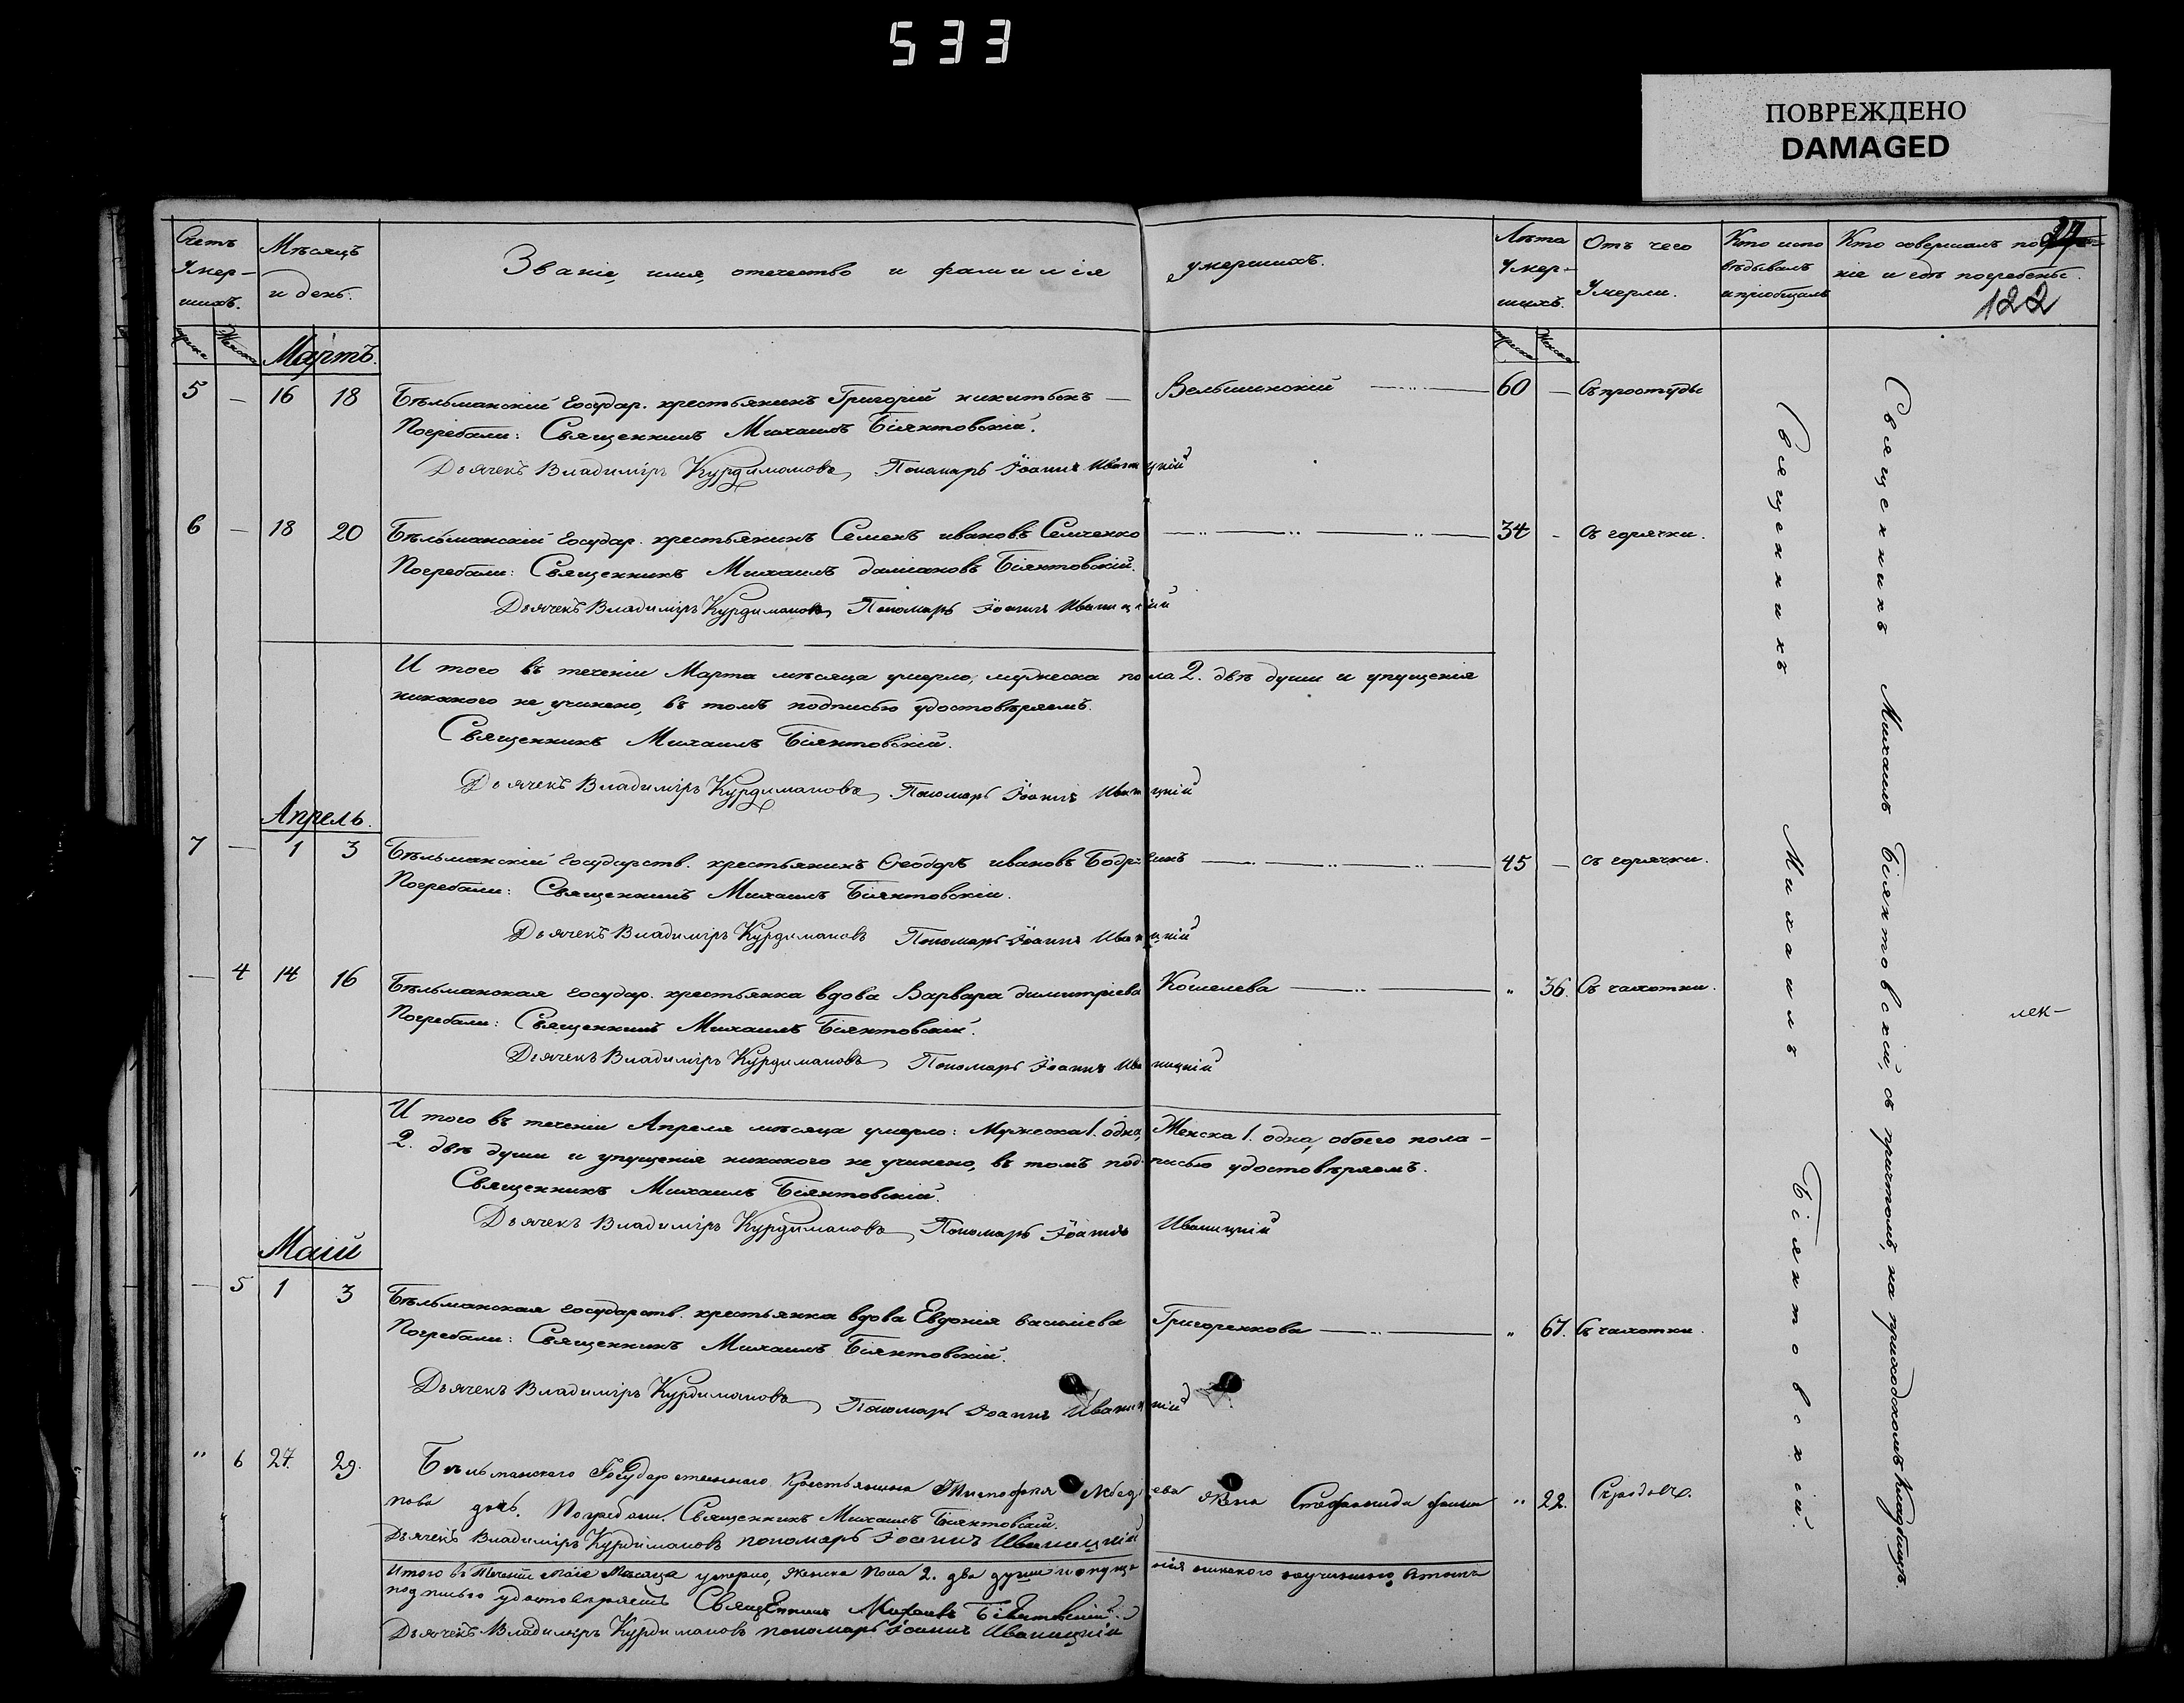 533
ПОВРЕЖДЕНО
DAMAGED
27
122
Счетъ Умер-шихъ.
Мѣсяцъ и день.
Званіе, имя, отечество и фамилія умершихъ.
Лѣта Умер-шихъ.
Отъ чего Умерли.
Кто испо вѣдывалъ и пріобщалъ
Кто совершалъ по ніе и гдѣ погребены.
Мартъ.
5 — 16 18 Бѣльманскій Государ. крестьянинъ Григорій никитинъ — Вельшинскій 60 — Съ простуды
Погребали: Священникъ Михаилъ Біянтовскій.
Дьячекъ Владиміръ Курдимановъ, Пономарь Іоаннъ Иваницкій
6 — 18 20 Бѣльманскій Государ. крестьянинъ Семенъ ивановъ Семченко 34 - Съ горячки.
Погребали: Священникъ Михаилъ даміановъ Біянтовскій.
Дьячекъ Владиміръ Курдимановъ, Пономарь Іоаннъ Иваницкій
И того въ теченіи Марта мѣсяца умерло, мужеска пола 2. двѣ души и упущенія
никакого не учинено, въ томъ подписью удостовѣряемъ.
Священникъ Михаилъ Біянтовскій.
Дьячекъ Владиміръ Курдимановъ, Пономарь Іоаннъ Иваницкій
Апрель.
7 — 1 3 Бѣльманскій Государств. крестьянинъ Ѳеодоръ ивановъ 45 — Съ горячки.
Погребали: Священникъ Михаилъ Біянтовскій.
Дьячекъ Владиміръ Курдимановъ Пономарь Іоаннъ Иваницкій
— 4 14 16 Бѣльманская государ. крестьянка вдова Варвара димитріева Кошелева „ 36. Съ чахотки.
Погребали: Священникъ Михаилъ Біянтовскій.
Дьячекъ Владиміръ Курдимановъ, Пономарь Іоаннъ Иваницкій
И того въ теченіи Апреля мѣсяца умерло: Мужеска 1. одна, Женска 1. одна, обоего пола -
2. двѣ души и упущенія никакого не учинено, въ томъ подписью удостовѣряемъ.
Священникъ Михаилъ Біянтовскій.
Дьячекъ Владиміръ Курдимановъ, Пономарь Іоаннъ Иваницкій
Маій
— 5 1 3 Бѣльманская государств. крестьянка вдова Евдокія васильева Григоренкова „ 67. Съ чахотки.
Погребали: Священникъ Михаилъ Біянтовскій.
Дьячекъ Владиміръ Курдимановъ, Пономарь Іоаннъ Иваницкій
„ 6 27. 29. Бѣльманскаго Государственнаго Крестьянина Тимофея жена Стефанида „ 22.
дочь. Погребали. Священникъ Михаилъ Біянтовскій.
Дьячекъ Владиміръ Курдимановъ пономарь Іоаннъ Иваницкій
Итого въ Теченіи Маіе Мѣсяца умерло, Женска Пола 2. два души и опущенія никакого
подписью удостовѣряемъ Священникъ Михаилъ Біянтовскій
Дьячекъ Владиміръ Курдимановъ пономарь Іоаннъ Иваницкій
Священникъ Михаилъ Біянтовскій.
Священникъ Михаилъ Біянтовскій, съ причтомъ, на приходскомъ Кладбищѣ.